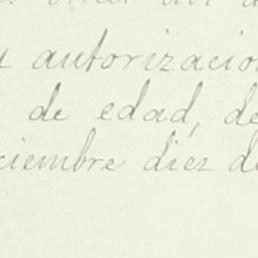 autorizacion
de edad, de
ciembre diez de